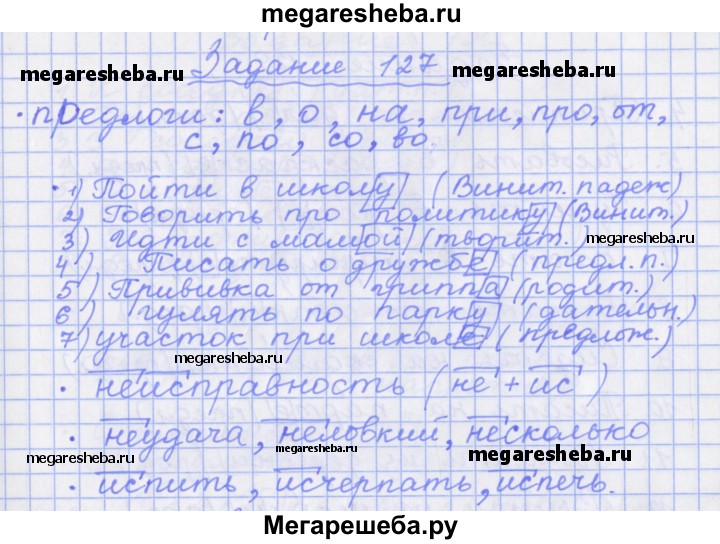 megaresheba.ru
Задание 127
megaresheba.ru megaresheba.ru
· предлоги: в, о, на, при, про, от,
с, по, со, во.
· 1) Пойти в школу (Винит. падеж)
2) Говорить про политику (Винит.)
3) Идти с мамой (творит.) megaresheba.ru
4) Писать о дружбе (предл. п.)
5) Прививка от гриппа (родит.)
6) гулять по парку (дательн.)
7) участок при школе (предлож.)
megaresheba.ru
· неисправность (не + ис)
· неудача, неловкий, несколько
megaresheba.ru megaresheba.ru megaresheba.ru
· испить, исчерпать, испечь.
Мегарешеба.ру